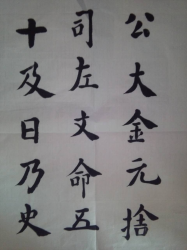 公大金元捨
司左丈命五
十及日乃史